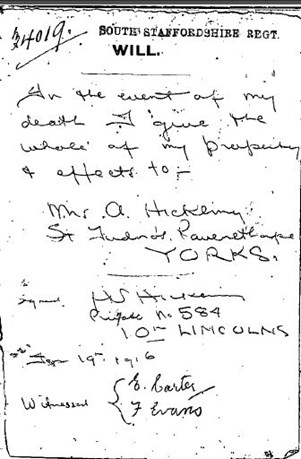 34019.
SOUTH STAFFORDSHIRE REGT.
WILL.
In the event of my
death I give the
whole of my Property
& effects to :-
Mrs A. Hickling
St Ravensthorpe
YORKS.
Signed
Private No 584
10TH LINCOLNS
19th 1916
Witnessed { E. Carter
F Evans